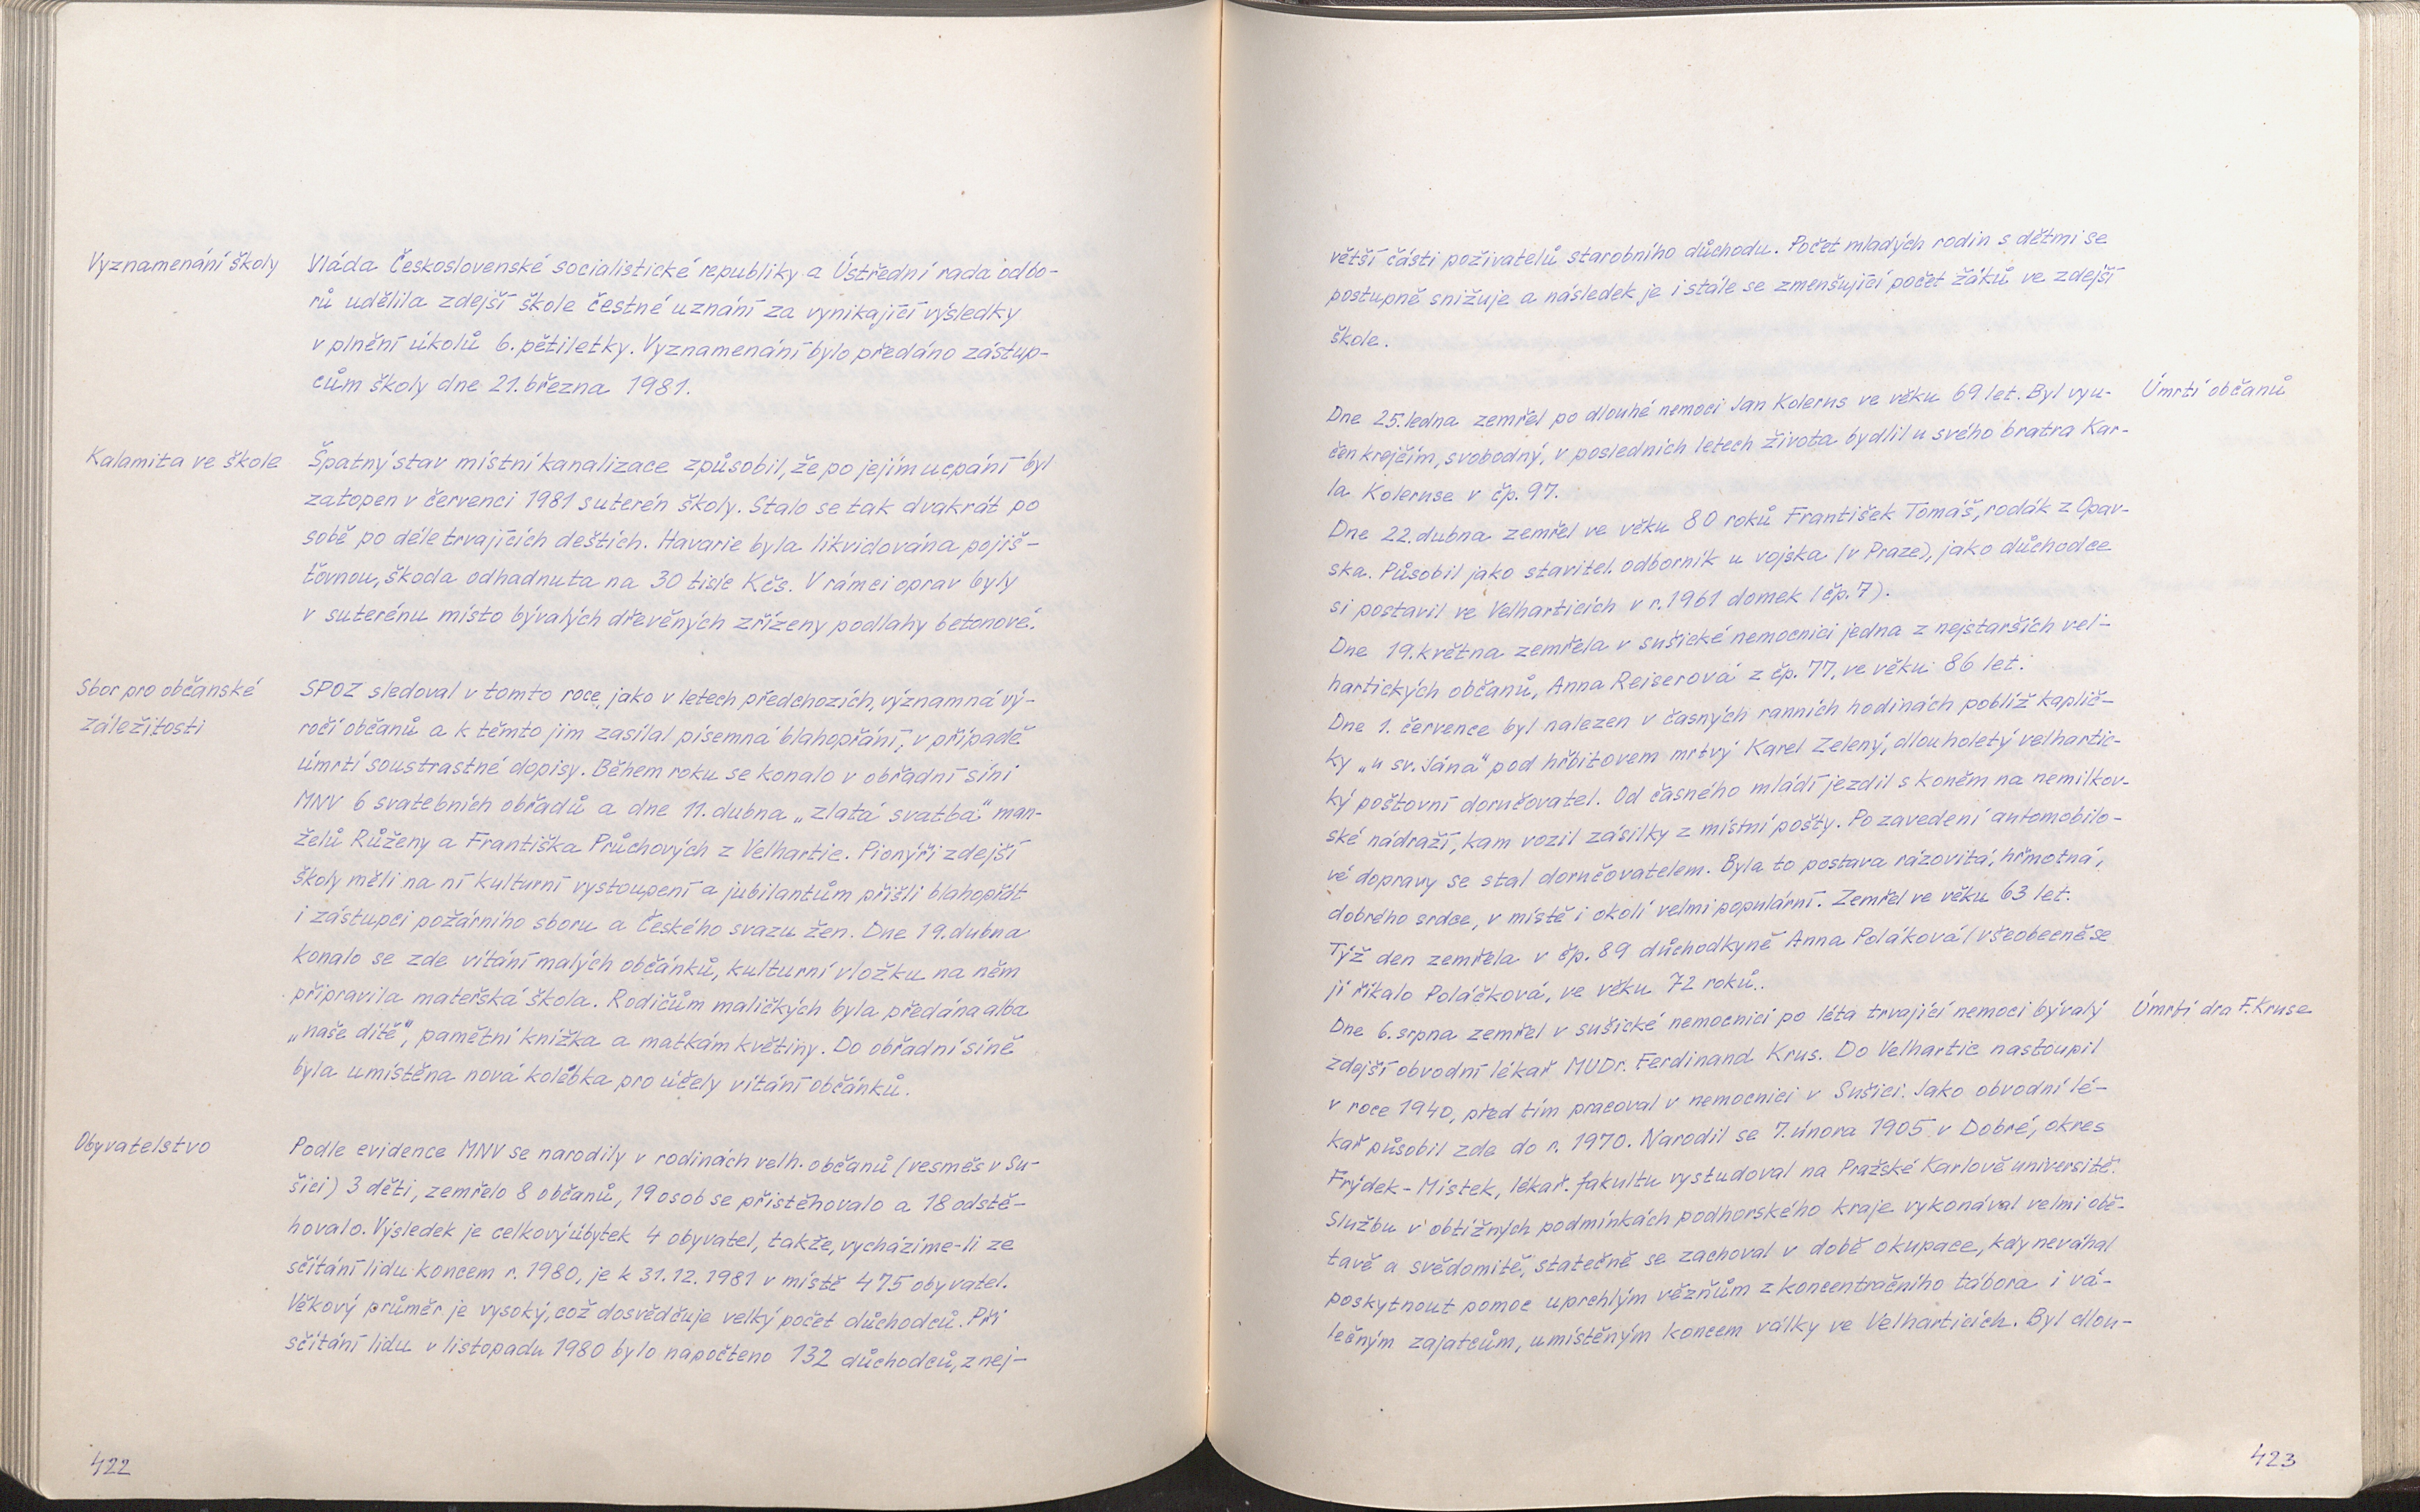 Vyznamenání školy
Vláda Československé socialistické republiky a Ústřední rada odbo-
rů udělila zdejší škole čestné uznání za vynikající výsledky
v plnění úkolů 6. pětiletky. Vyznamenání bylo předáno zástup-
cům školy dne 21. března 1981.
Kalamita ve škole
Špatný stav místní kanalizace způsobil, že po jejím ucpání byl
zatopen v červenci 1981 suterén školy. Stalo se tak dvakrát po
sobě po déle trvajících deštích. Havarie byla likvidována pojiš-
ťovnou, škoda odhadnuta na 30 tisíc Kčs. V rámci oprav byly
v suterénu místo bývalých dřevěných zřízeny podlahy betonové.
Sbor pro občanské
záležitosti
SPOZ sledoval v tomto roce, jako v letech předchozích, významná vý-
ročí občanů a k těmto jim zasílal písemná blahopřání, v případě
úmrtí soustrastné dopisy. Během roku se konalo v obřadní síni
MNV 6 svatebních obřadů a dne 11. dubna „zlatá svatba" man-
želů Růženy a Františka Průchových z Velhartic. Pionýři zdejší
školy měli na ní kulturní vystoupení a jubilantům přišli blahopřát
i zástupci požárního sboru a Českého svazu žen. Dne 19. dubna
konalo se zde vítání malých občánků, kulturní vložku na něm
připravila mateřská škola. Rodičům maličkých byla předána alba
„naše dítě", pamětní knížka a matkám květiny. Do obřadní síně
byla umístěna nová kolébka pro účely vítání občánků.
Obyvatelstvo
Podle evidence MNV se narodily v rodinách velh. občanů (vesměs v Su-
šici) 3 děti, zemřelo 8 občanů, 19 osob se přistěhovalo a 18 odstě-
hovalo. Výsledek je celkový úbytek 4 obyvatel, takže, vycházíme-li ze
sčítání lidu koncem r. 1980, je k 31.12.1981 v místě 475 obyvatel.
Věkový průměr je vysoký, což dosvědčuje velký počet důchodců. Při
sčítání lidu v listopadu 1980 bylo napočteno 132 důchodců, z nej-
422
větší části poživatelů starobního důchodu. Počet mladých rodin s dětmi se
postupně snižuje a následek je i stále se zmenšující počet žáků ve zdejší
škole.
Úmrtí občanů
Dne 25. ledna zemřel po dlouhé nemoci Jan Kolerus ve věku 69 let. Byl vyu-
čen krejčím, svobodný, v posledních letech života bydlil u svého bratra Kar-
la Koleruse v čp. 97.
Dne 22. dubna zemřel ve věku 80 roků František Tomáš, rodák z Opav-
ska. Působil jako stavitel. odborník u vojska (v Praze), jako důchodce
si postavil ve Velharticích v r. 1961 domek (čp. 7).
Dne 19. května zemřela v sušické nemocnici jedna z nejstarších vel-
hartických občanů, Anna Reiserová z čp. 77, ve věku 86 let.
Dne 1. července byl nalezen v časných ranních hodinách poblíž kaplič-
ky „u sv. Jána" pod hřbitovem mrtvý Karel Zelený, dlouholetý velhartic-
ký poštovní doručovatel. Od časného mládí jezdil s koněm na nemilkov-
ské nádraží, kam vozil zásilky z místní pošty. Po zavedení automobilo-
vé dopravy se stal doručovatelem. Byla to postava rázovitá, hřmotná,
dobrého srdce, v místě i okolí velmi populární. Zemřel ve věku 63 let.
Týž den zemřela v čp. 89 důchodkyně Anna Poláková (všeobecně se
jí říkalo Poláčková, ve věku 72 roků.
Úmrtí dra F. Kruse
Dne 6. srpna zemřel v sušické nemocnici po léta trvající nemoci bývalý
zdejší obvodní lékař MUDr. Ferdinand Krus. Do Velhartic nastoupil
v roce 1940, před tím pracoval v nemocnici v Sušici. Jako obvodní lé-
kař působil zde do r. 1970. Narodil se 7. února 1905 v Dobré, okres
Frýdek-Místek, lékař. fakultu vystudoval na Pražské Karlově universitě.
Službu v obtížných podmínkách podhorského kraje vykonával velmi obě-
tavě a svědomitě, statečně se zachoval v době okupace, kdy neváhal
poskytnout pomoc uprchlým vězňům z koncentračního tábora i vá-
lečným zajatcům, umístěným koncem války ve Velharticích. Byl dlou-
423